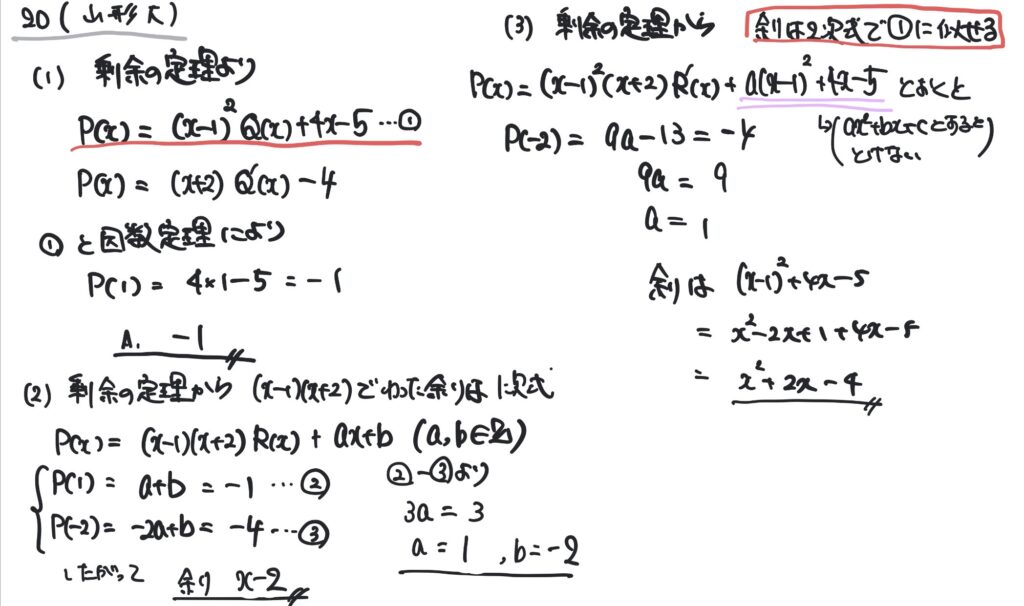 20 (山形大)
(1) 剰余の定理より
P(x) = (x-1)²Q(x)+4x-5 …①
P(x) = (x+2)Q'(x) -4
①と因数定理により
P(1) = 4×1-5 = -1
A. -1
(2) 剰余の定理から (x-1)(x+2)でわった余りは1次式
P(x) = (x-1)(x+2)R(x) + ax+b (a,b∈ℤ)
P(1) = a+b = -1 …②
P(-2) = -2a+b = -4 …③
したがって 余り x-2
②-③より
3a = 3
a = 1 , b = -2
(3) 剰余の定理から 余りは2次式で①に似せる
P(x) = (x-1)²(x+2)R'(x) + a(x-1)²+4x-5 とおくと
↳(ax²+bx+cとすると
とけない)
P(-2) = 9a-13 = -4
9a = 9
a = 1
余りは (x-1)²+4x-5
= x²-2x+1+4x-5
= x²+2x-4